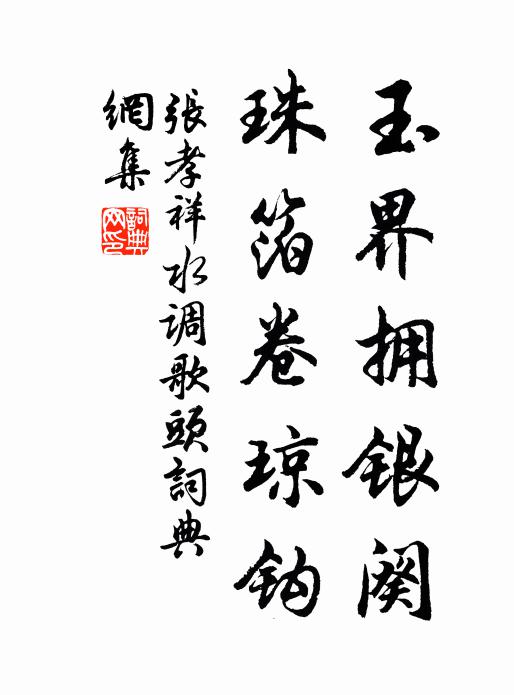 玉界拥银阙
珠箔卷琼钩
張孝祥水调歌頭詞典
網集
詞典
网印